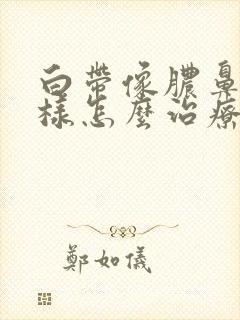 白帶像膿鼻
樣怎麼治療
鄭如儀